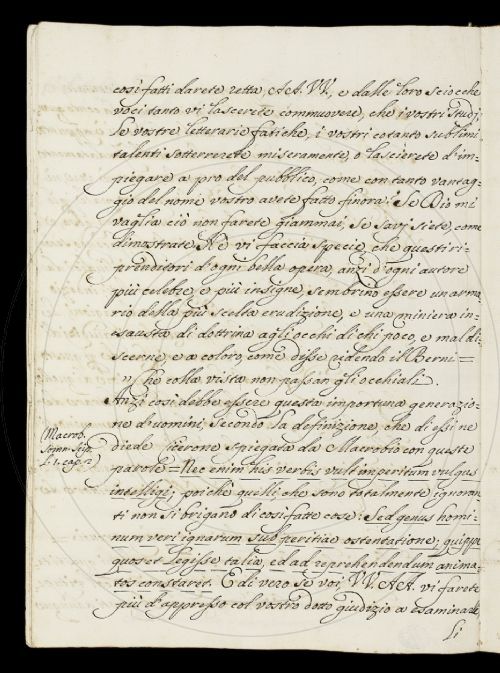 così fatti darete retta, AA. VV., e dalle loro sciocche
voci tanto vi lascerete commuovere, che i vostri studj,
le vostre letterarie fatiche, i vostri cotanto sublimi
talenti sotterrerete miseramente, o lascierete d'im=
piegare a pro del pubblico, come con tanto vantag=
gio del nome vostro avete fatto finora? Se Dio mi
vaglia ciò non farete giammai, se savj siete, come
dimostrate. Nè vi faccia specie, che questi ri=
prenditori d'ogni bella opera, anzi d'ogni autore
più celebre, e più insigne, sembrino essere un arma=
rio della più scelta erudizione, e una miniera in=
esausta di dottrina agli occhi di chi poco, e mal di=
scerne, e a coloro, come disse ridendo il Berni =
" Che colla vista non passan gli occhiali.
Anzi così debbe essere questa importuna generazio=
ne d'uomini, secondo la definizione, che di essi ne
Macrob.
Somn. Scip.
L. 1. cap. 2
diede Cicerone spiegata da Macrobio con queste
parole = Nec enim his verbis vult imperitum vulgus
intelligi; poichè quelli, che sono totalmente ignoran
ti non si brigano di così fatte cose: Sed genus homi=
num veri ignarum sub peritiæ ostentatione; quippe
quos et legisse talia, ed ad reprehendendum anima=
tos constaret. E di vero se voi, VV. AA. vi farete
più d'appresso col vostro dotto giudizio a esaminar
li